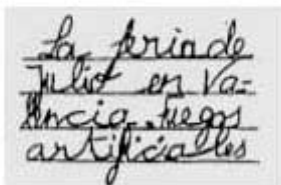 La feria de
Julio en Va=
lencia. fuegos
artificiales